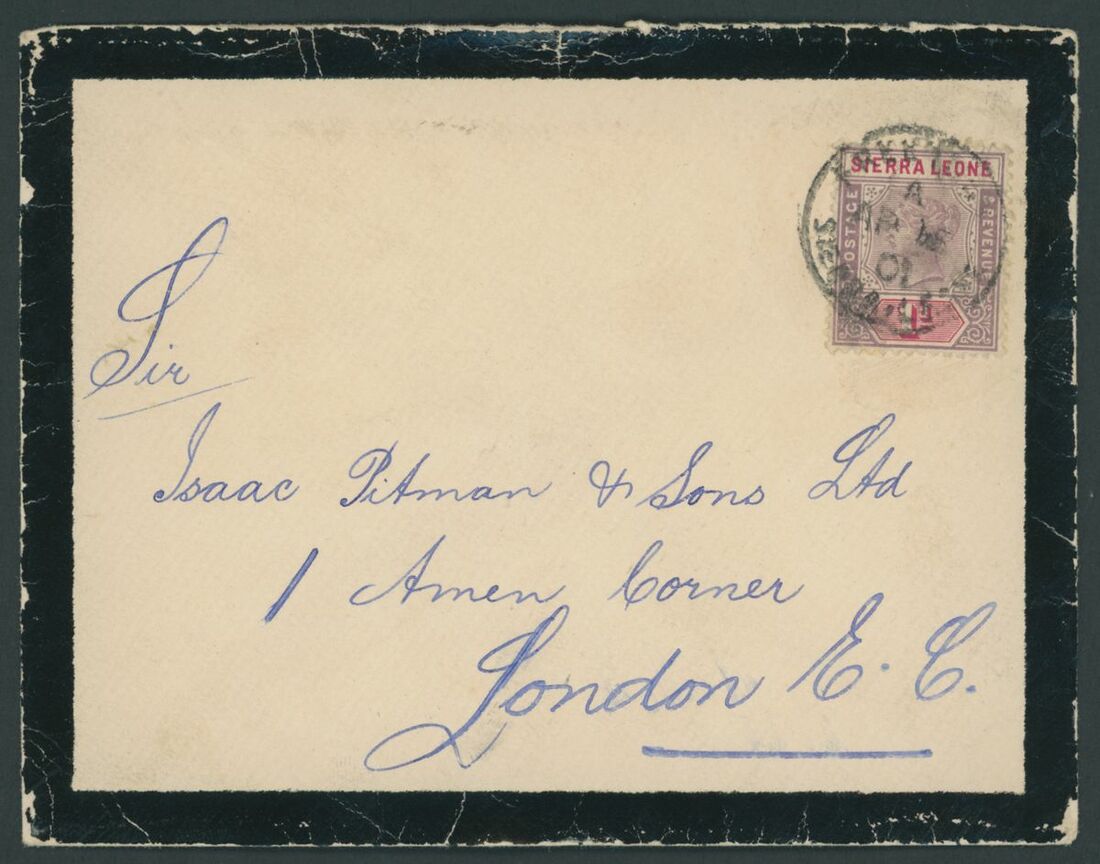 SIERRA LEONE
POSTAGE & REVENUE
1D
A
01
SIERRA LEONE
Sir
Isaac Pitman & Sons Ltd
1 Amen Corner
London E. C.